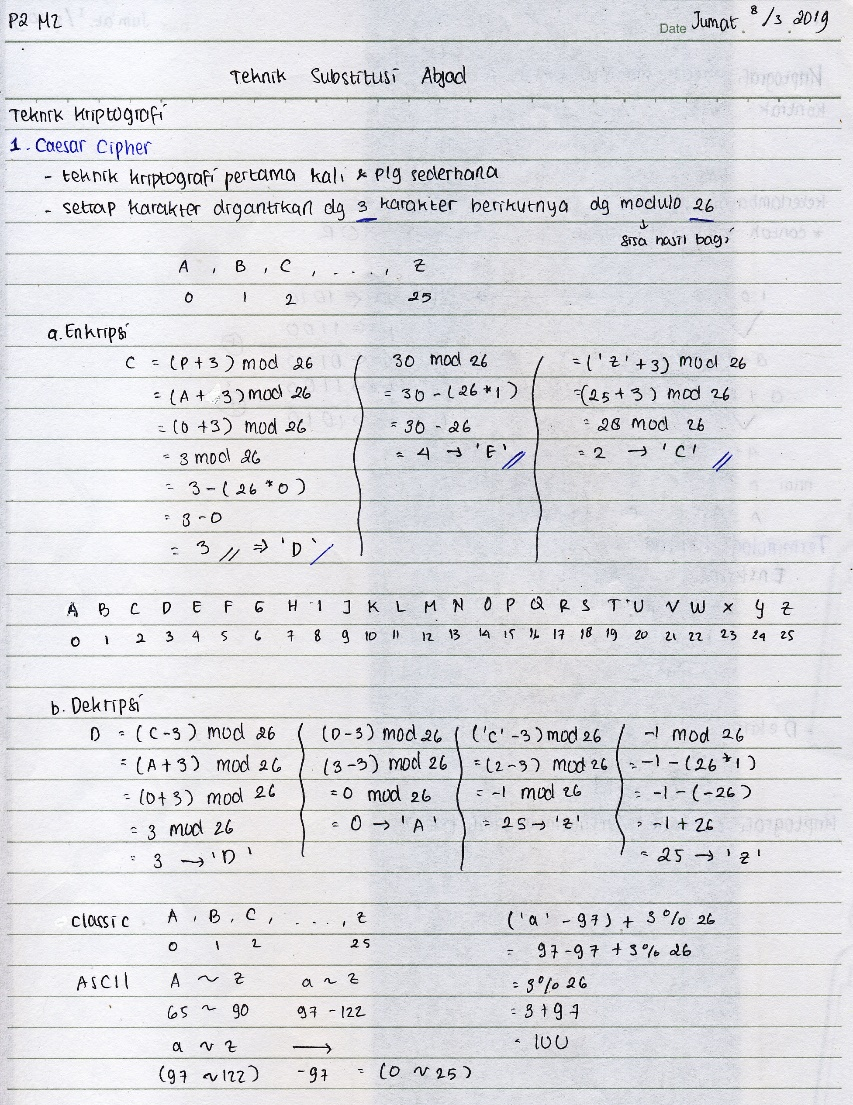 P2 M2
Date Jumat, 8/3 2019
Teknik Substitusi Abjad
Teknik Kriptografi
1. Caesar Cipher
- teknik kriptografi pertama kali & plg sederhana
- setiap karakter digantikan dg 3 karakter berikutnya dg modulo 26
↓
sisa hasil bagi
A , B , C , . . . . , Z
0 1 2 25
a. Enkripsi
C = (P+3) mod 26
= (A + 3) mod 26
= (0 +3) mod 26
= 3 mod 26
= 3 - (26 * 0)
= 3 - 0
= 3 // ⇒ 'D' /
30 mod 26
= 30 - (26 * 1)
= 30 - 26
= 4 → 'E' //
= ('Z' + 3) mod 26
= (25 + 3) mod 26
= 28 mod 26
= 2 → 'C' //
A B C D E F G H I J K L M N O P Q R S T U V W X Y Z
0 1 2 3 4 5 6 7 8 9 10 11 12 13 14 15 16 17 18 19 20 21 22 23 24 25
b. Dekripsi
D = (C-3) mod 26
= (A+3) mod 26
= (0+3) mod 26
= 3 mod 26
= 3 → 'D'
(D-3) mod 26
(3-3) mod 26
= 0 mod 26
= 0 → 'A'
('C' -3) mod 26
= (2-3) mod 26
= -1 mod 26
= 25 → 'Z'
-1 mod 26
= -1 - (26 * 1)
= -1 - (-26)
= -1 + 26
= 25 → 'Z'
classic A , B , C , . . . . , Z
0 1 2 25
ASCII A ~ Z a ~ z
65 ~ 90 97 - 122
a ~ z →
(97 ~ 122) -97 = (0 ~ 25)
('a' - 97) + 3 % 26
= 97 - 97 + 3 % 26
= 3 % 26
= 3 + 97
= 100